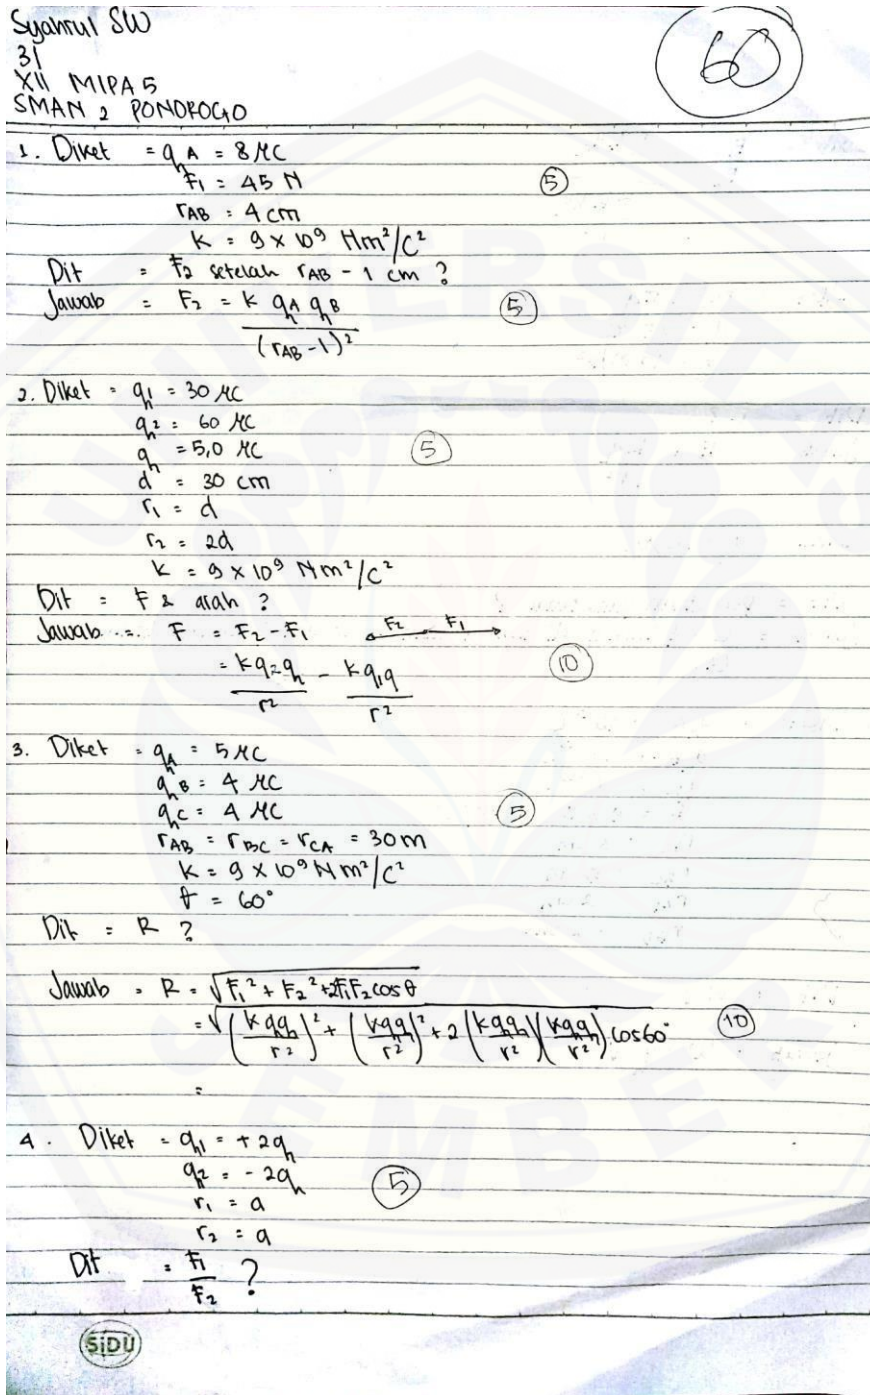 Syahrul SW
31
XII MIPA 5
SMAN 2 PONOROGO
60
1. Diket = qA = 8 μC
F1 = 45 N
5
rAB = 4 cm
k = 9 × 10⁹ Nm²/C²
Dit = F2 setelah rAB - 1 cm ?
Jawab = F2 = k qA qB / (rAB - 1)²
5
2. Diket = q1 = 30 μC
q2 = 60 μC
q = 5,0 μC
5
d = 30 cm
r1 = d
r2 = 2d
k = 9 × 10⁹ Nm²/C²
Dit = F & arah ?
Jawab = F = F2 - F1 F2 F1
= kq2q / r² - kq1q / r²
10
3. Diket = qA = 5 μC
qB = 4 μC
qC = 4 μC
5
rAB = rBC = rCA = 30 m
k = 9 × 10⁹ Nm²/C²
θ = 60°
Dit = R ?
Jawab = R = √F1² + F2² + 2F1F2 cos θ
= √(kqq / r²)² + (kqq / r²)² + 2 (kqq / r²)(kqq / r²) cos 60°
10
=
4. Diket = q1 = + 2q
q2 = - 2q
5
r1 = a
r2 = a
Dit = F1 / F2 ?
SiDU
UNIVERSITAS
JEMBER